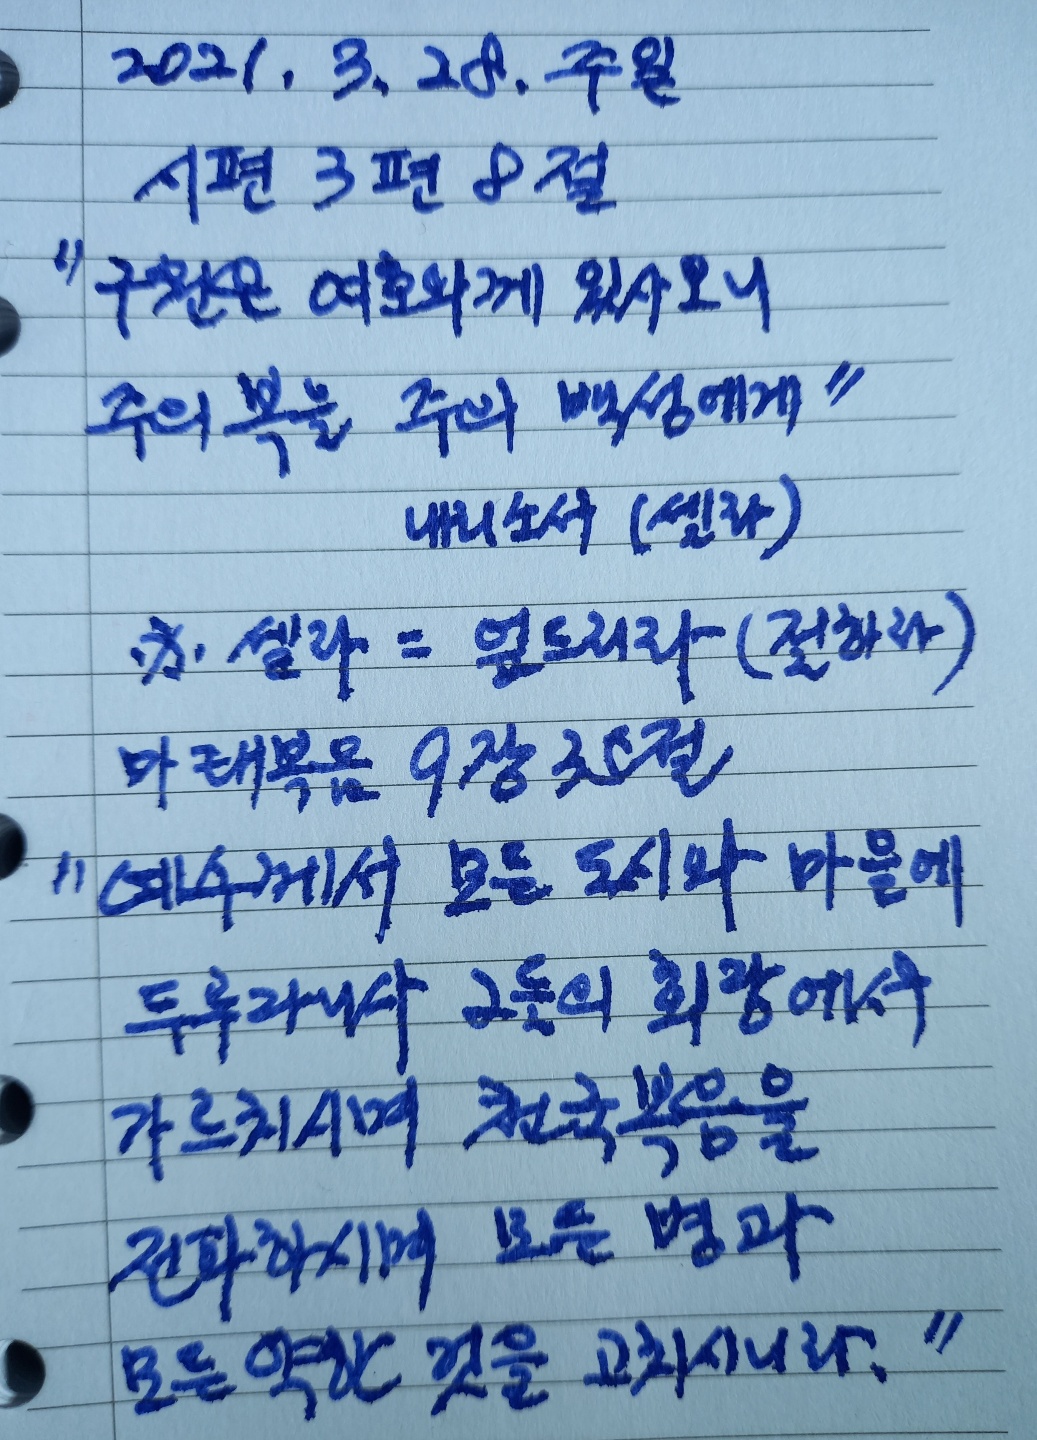 2021. 3. 28. 주일
시편 3편 8절
"구원은 여호와께 있사오니
주의 복을 주의 백성에게"
내리소서 (셀라)
※. 셀라 = 엎드리라 (절하라)
마태복음 9장 35절
"예수께서 모든 도시와 마을에
두루다니사 그들의 회당에서
가르치시며 천국복음을
전파하시며 모든 병과
모든 약한 것을 고치시니라."